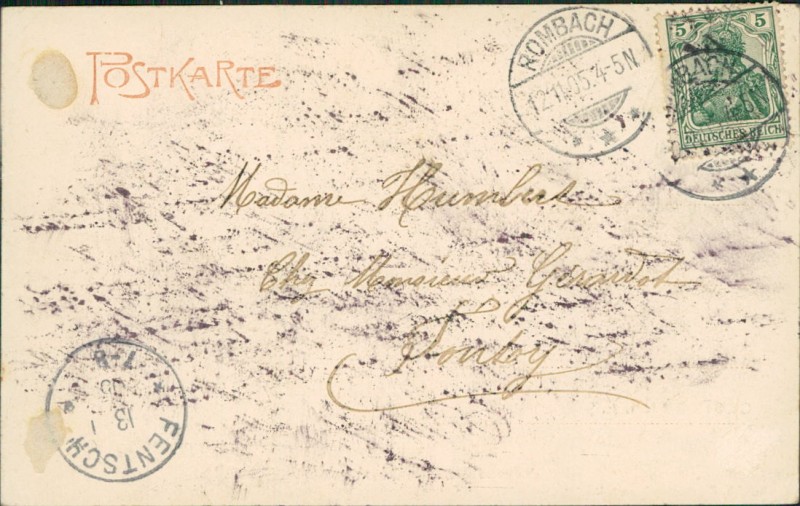 POSTKARTE
ROMBACH
12.11.05.4-5N
5 5
DEUTSCHES REICH
Madame Humbert
Chez Monsieur Girardot
FENTSCH
13
7-8